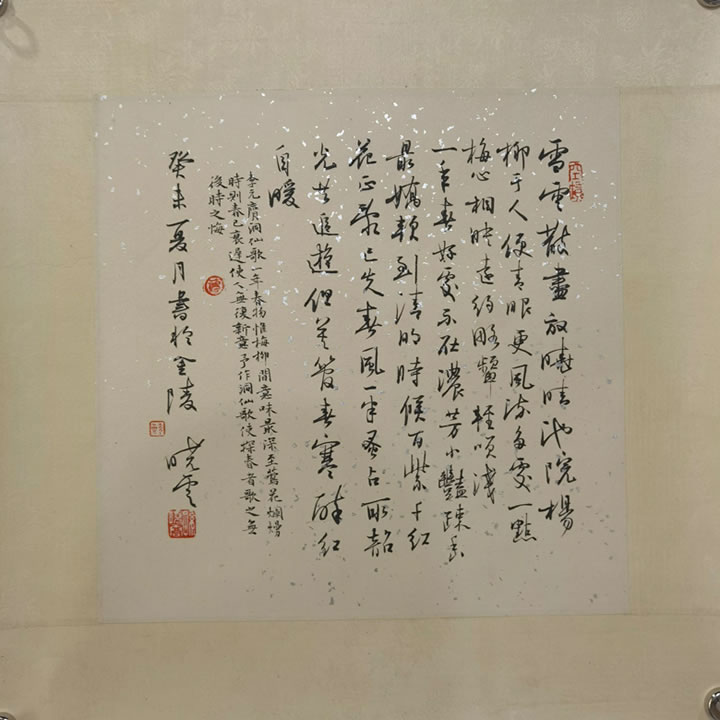 雪雲散盡放曉晴池院楊
柳于人便青眼更風流多處一點
梅心相映遠約略顰輕咲淺
一年春好處不在濃芳小豔疎香
最嬌軟到清明時候百紫千紅
花正亂已失春風一半蚤占取韶
光共追遊但莫管春寒醉紅
自暖
李元膺洞仙歌一年春物惟梅柳間意味最深至鶯花爛熳
時則春已衰遲使人無復新意予作洞仙歌使探春者歌之無
後時之悔
癸未夏月書於金陵
曉雲